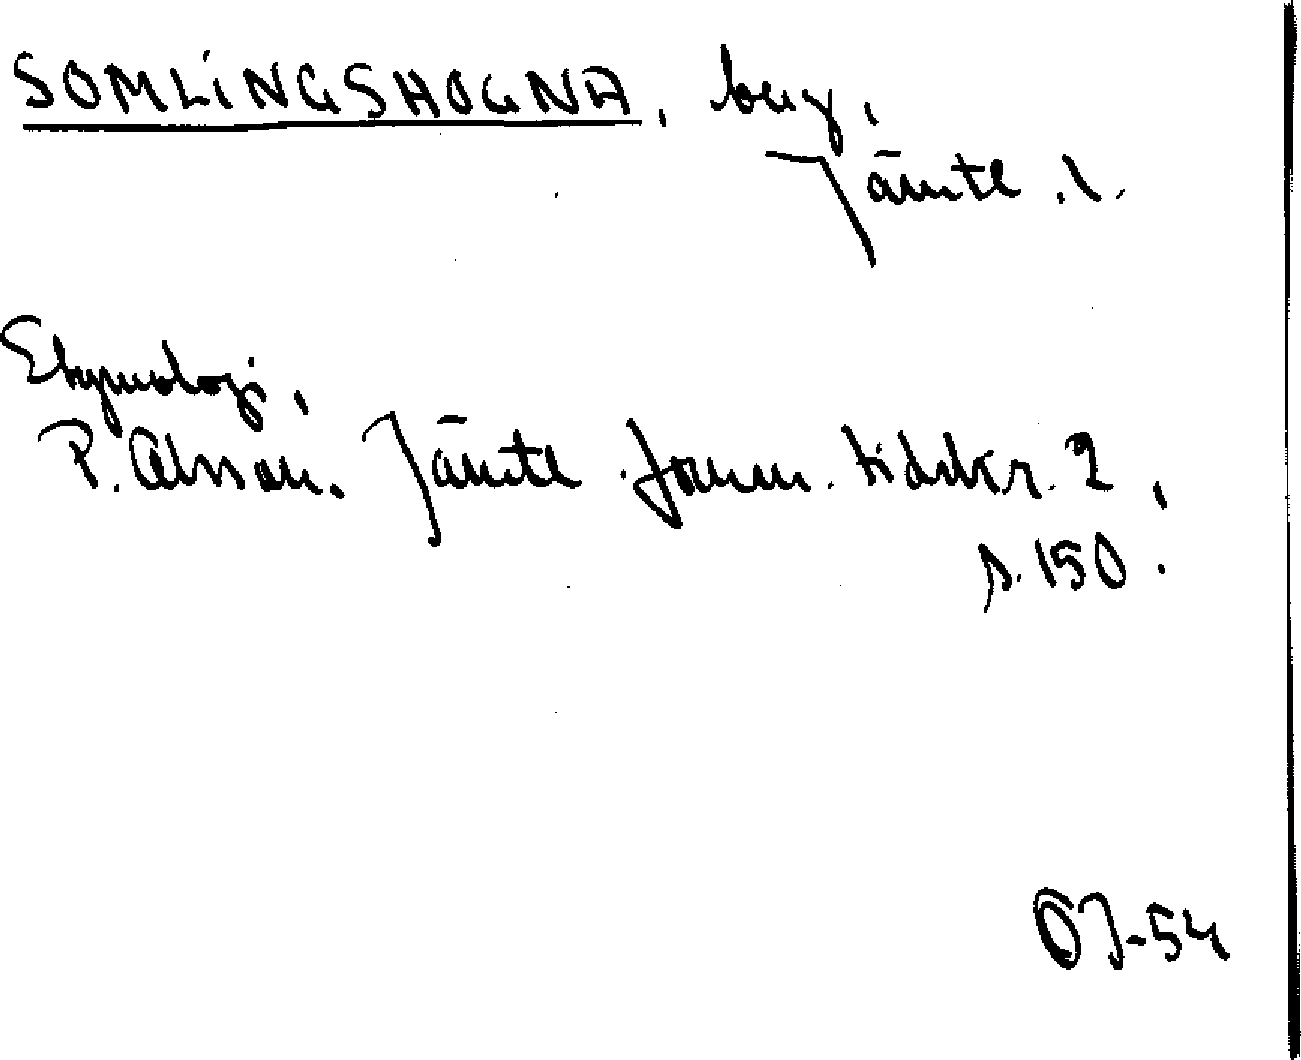 SOMLINGSHOGNA, berg,
Jämtl.l.
Etymologi,
P. Olsson. Jämtl. fornm. tidskr. 2,
s. 150.
OJ-54